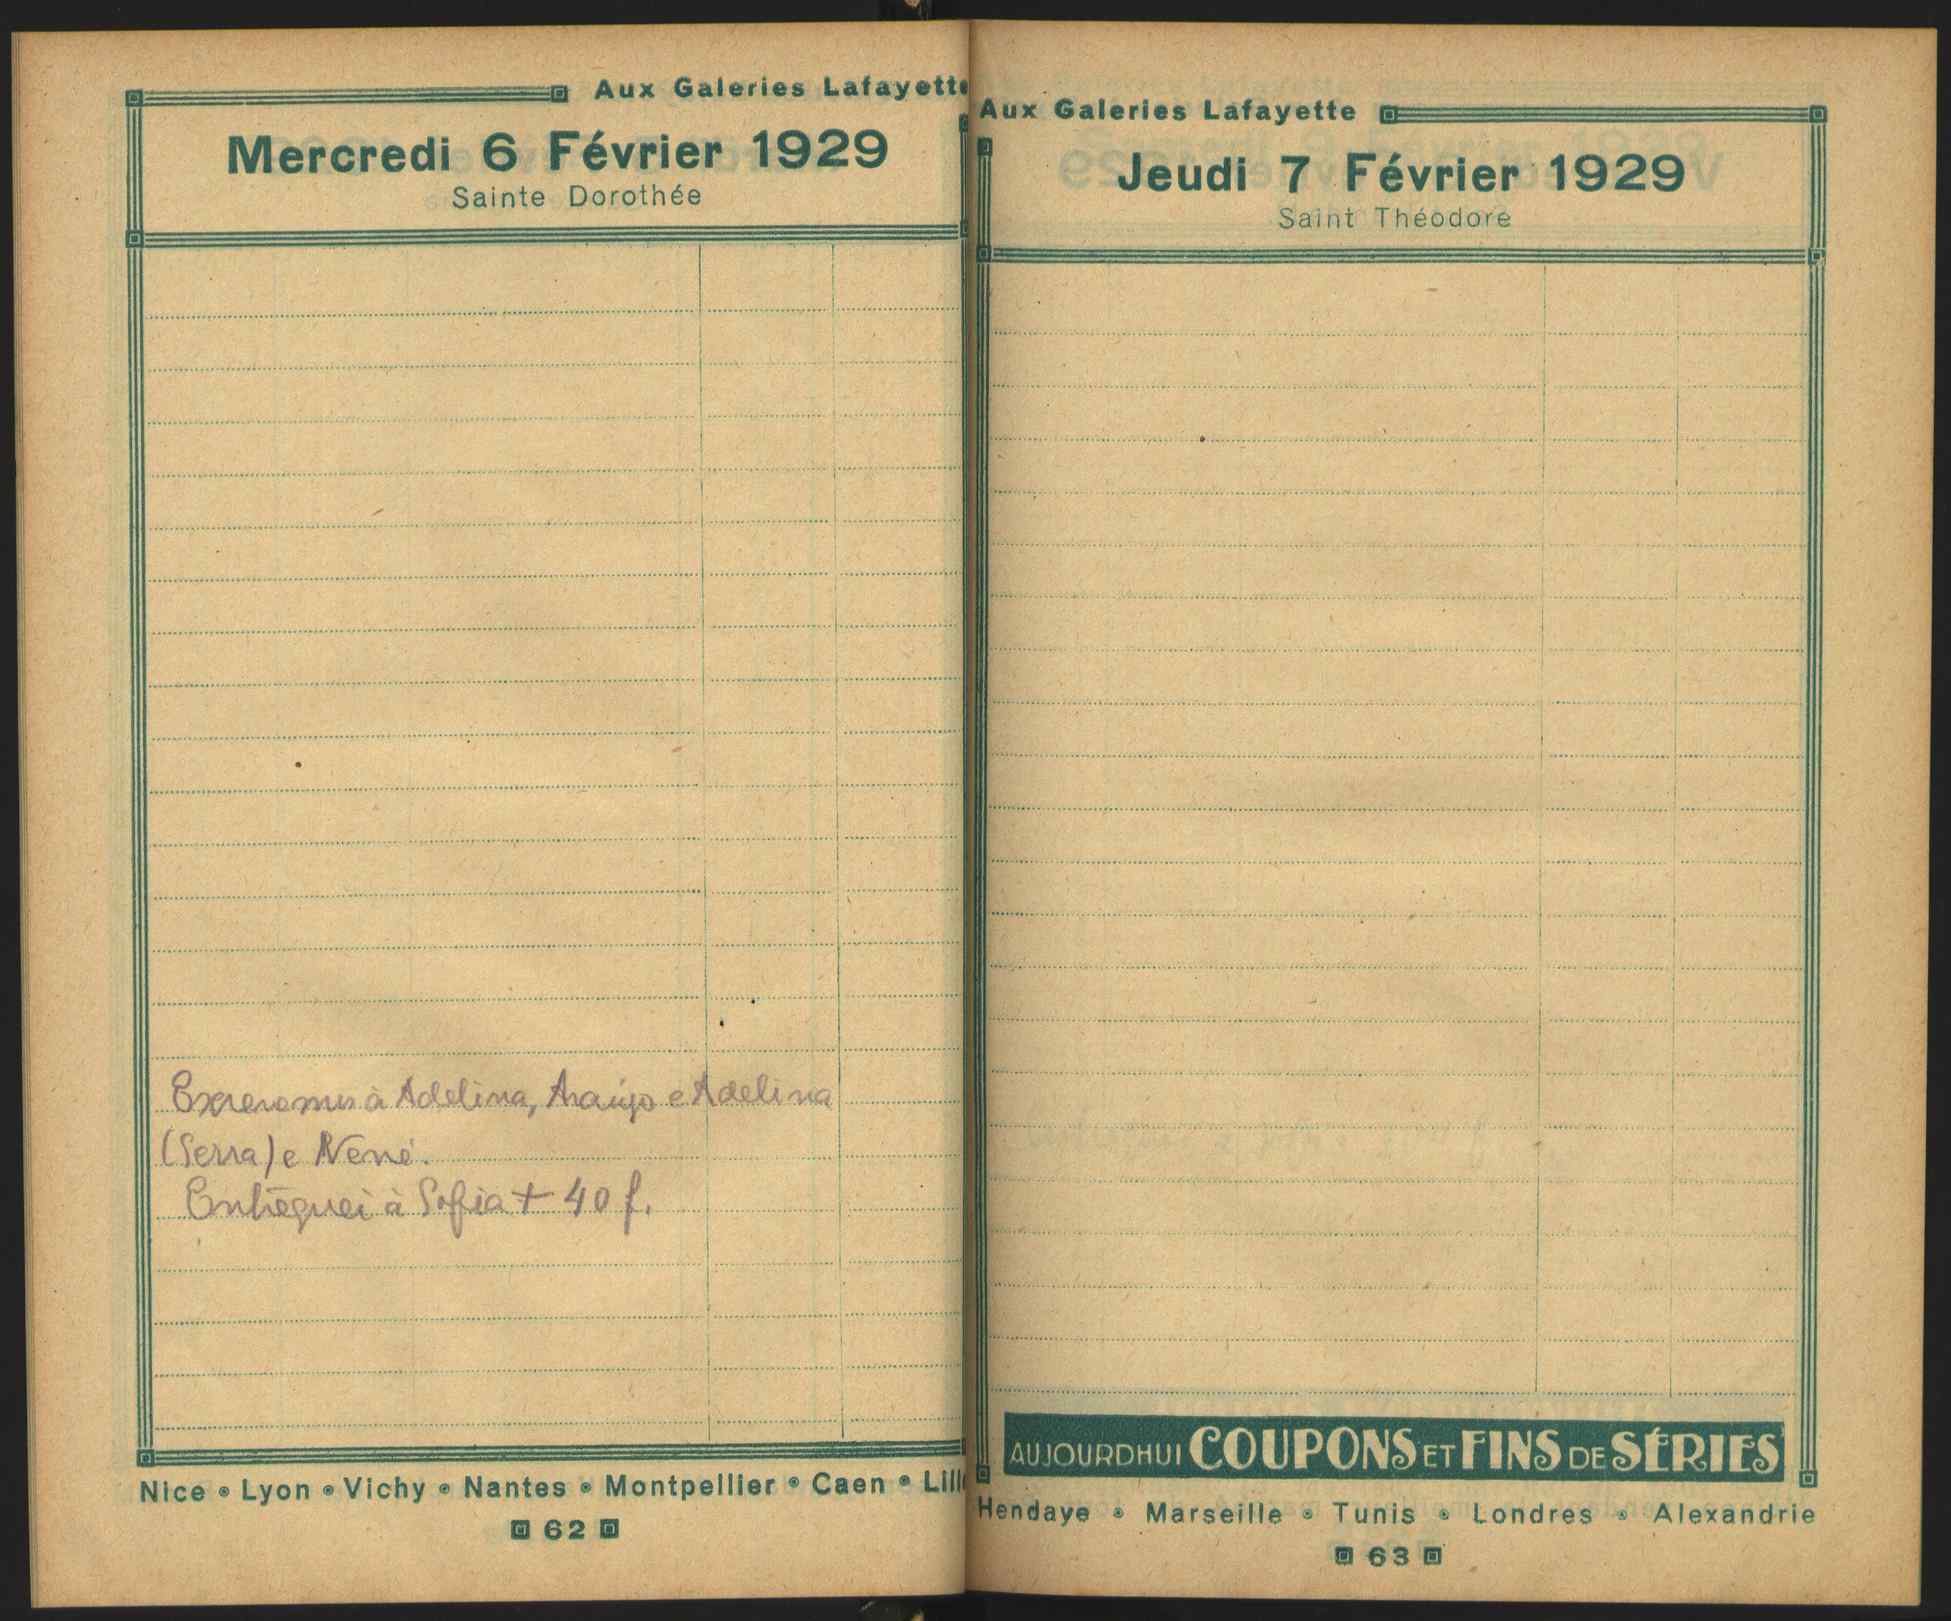 Aux Galeries Lafayette
Mercredi 6 Février 1929
Sainte Dorothée
Escrevemos à Adelina, Araújo e Adelina
(Serra) e Nené.
Entreguei à Sofia + 40 f.
Nice • Lyon • Vichy • Nantes • Montpellier • Caen • Lill
62
Aux Galeries Lafayette
Jeudi 7 Février 1929
Saint Théodore
AUJOURDHUI COUPONS ET FINS DE SÉRIES
Hendaye • Marseille • Tunis • Londres • Alexandrie
63